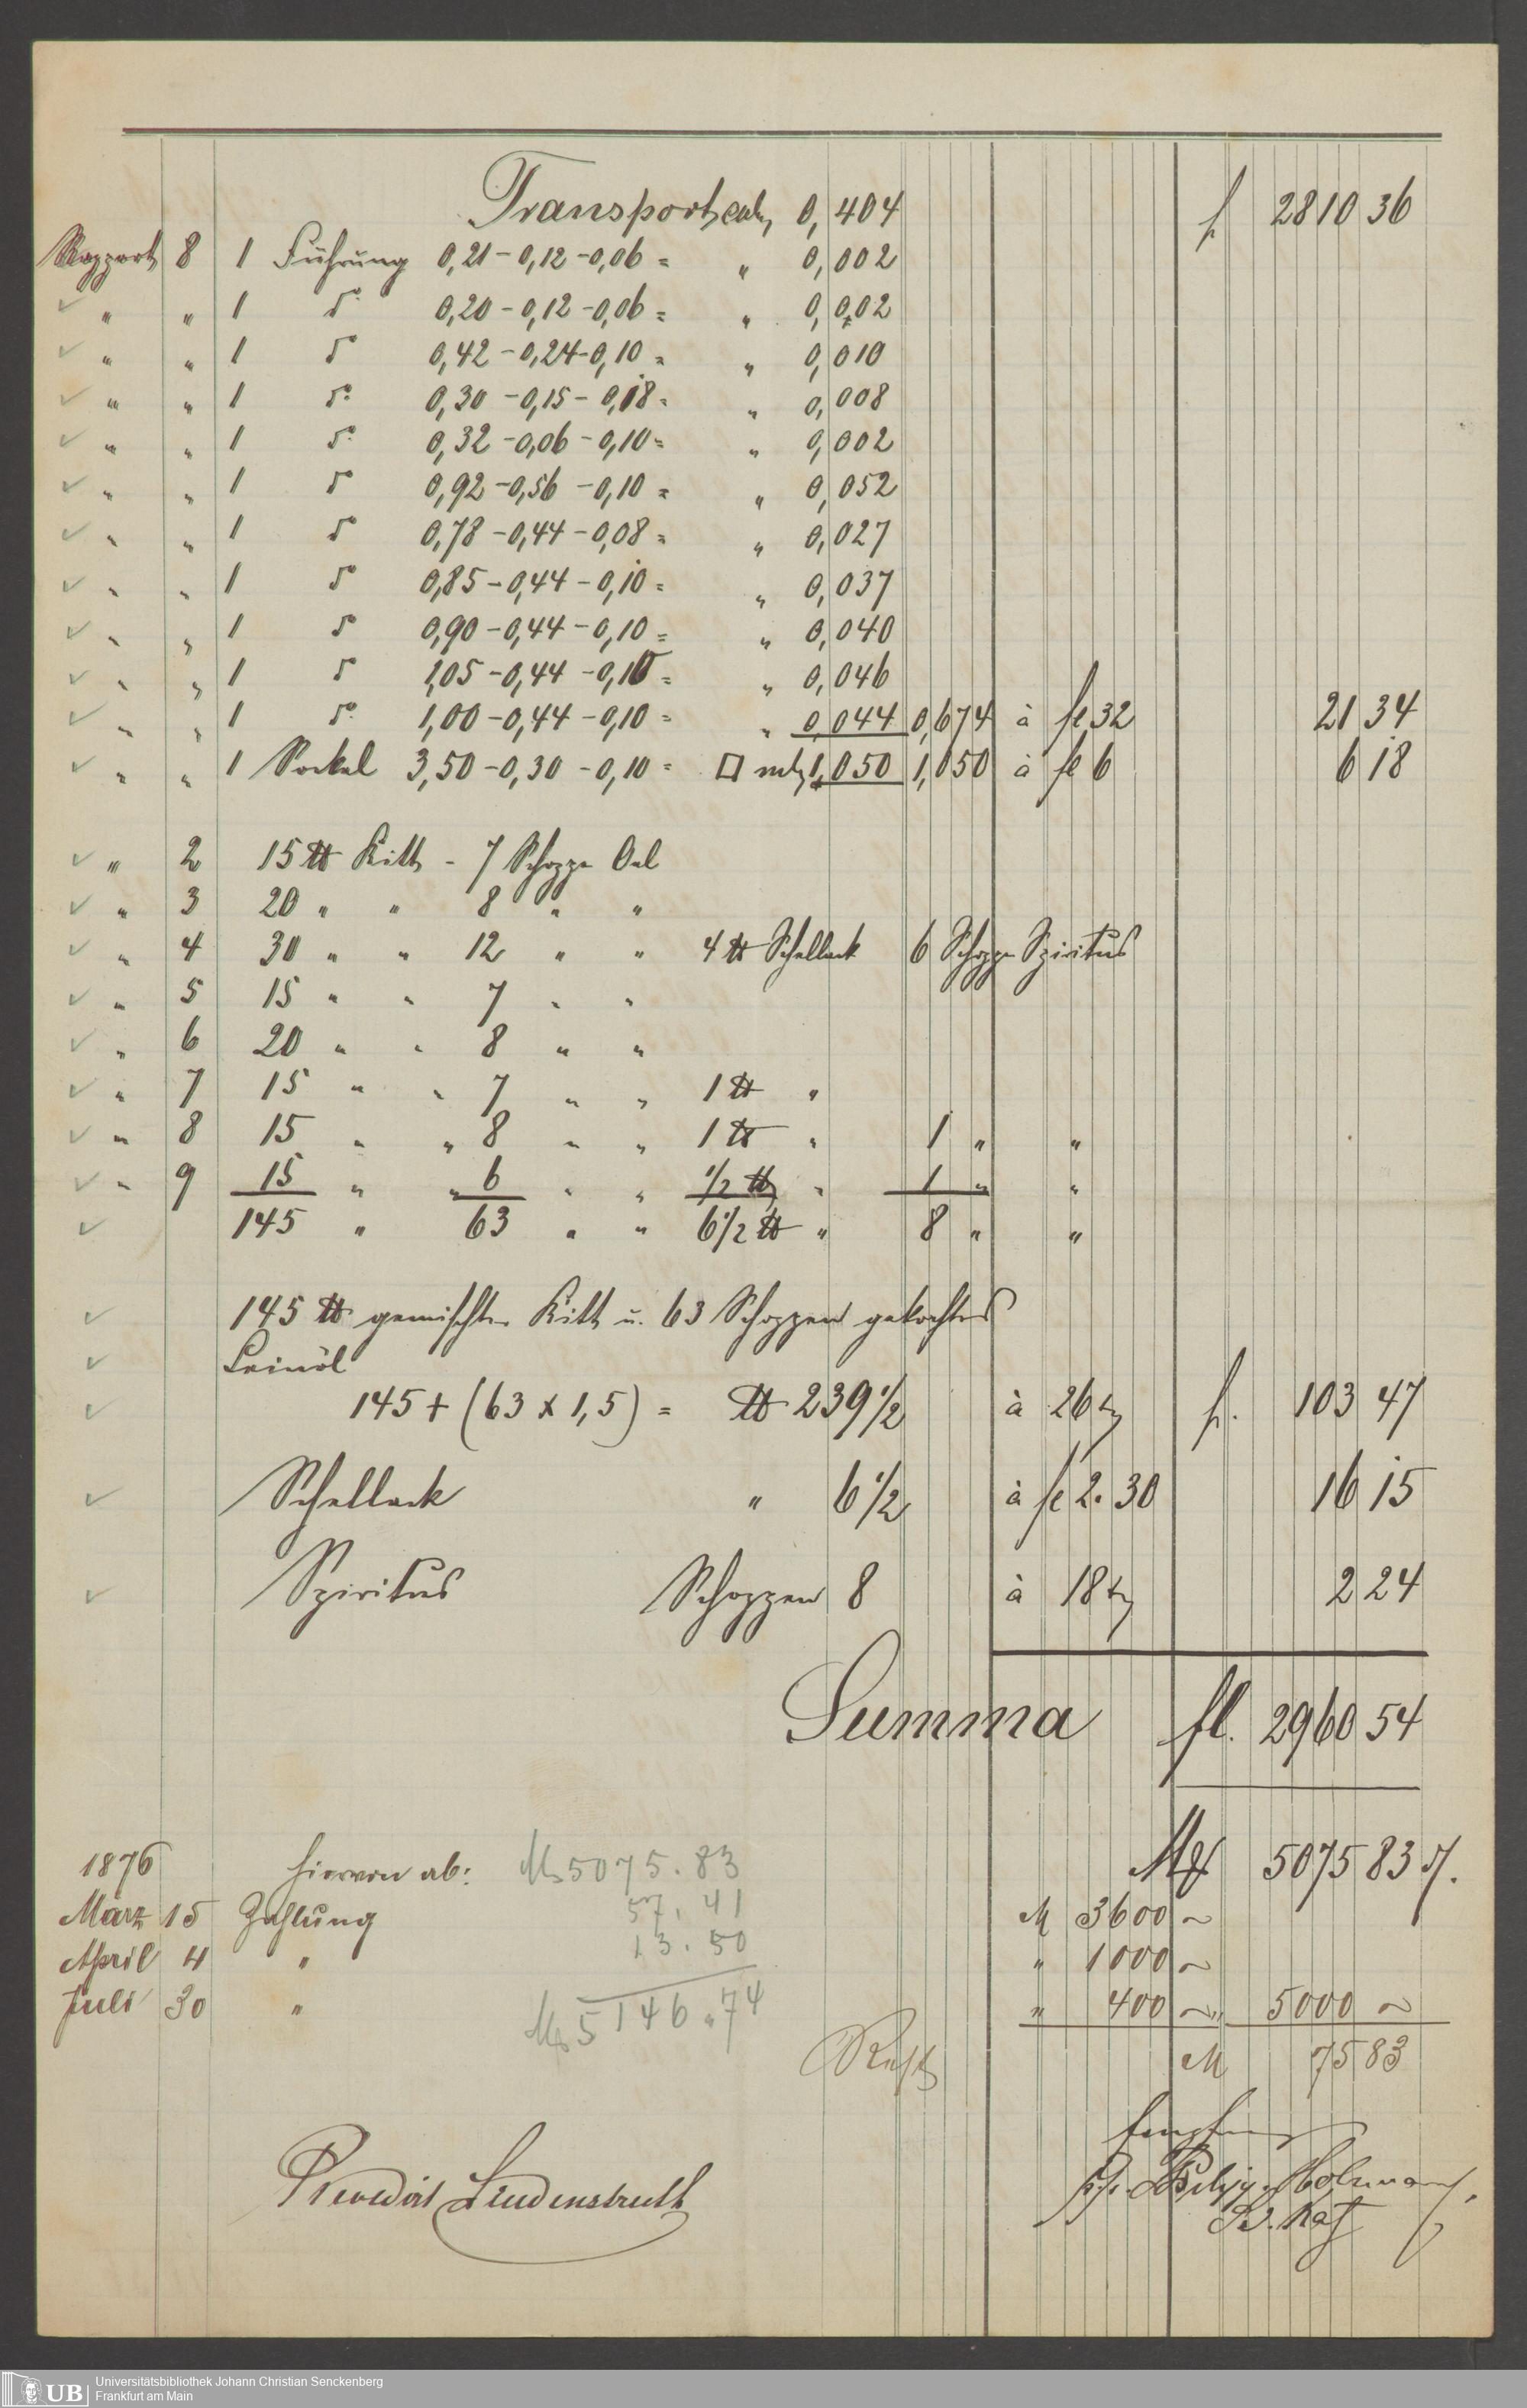 Transport cub, 0,404 f 2810 36
Rapport 8 1 Führung 0,21 - 0,12 - 0,06 = " 0,002
" " 1 do 0,20 - 0,12 - 0,06 = " 0,002
" " 1 do 0,42 - 0,24 - 0,10 = " 0,010
" " 1 do 0,30 - 0,15 - 0,18 = " 0,008
" " 1 do 0,32 - 0,06 - 0,10 = " 0,002
" " 1 do 0,92 - 0,56 - 0,10 = " 0,052
" " 1 do 0,78 - 0,44 - 0,08 = " 0,027
" " 1 do 0,85 - 0,44 - 0,10 = " 0,037
" " 1 do 0,90 - 0,44 - 0,10 = " 0,040
" " 1 do 1,05 - 0,44 - 0,10 = " 0,046
" " 1 do 1,00 - 0,44 - 0,10 = " 0,044 0,674 à fl 32 21 34
" " 1 Sockel 3,50 - 0,30 - 0,10 = □ mtr 1,050 1,050 à fl 6 6 18
" 2 15 ℔ Kitt - 7 Schoppe Oel
" 3 20 " " 8 " "
" 4 30 " " 12 " " 4 ℔ Schellack 6 Schoppe Spiritus
" 5 15 " " 7 " "
" 6 20 " " 8 " "
" 7 15 " " 7 " " 1 ℔ "
" 8 15 " " 8 " " 1 ℔ " 1 " "
" 9 15 " " 6 " " 1/2 ℔ " 1 " "
145 " 63 " " 6 1/2 ℔ " 8 " "
145 ℔ gemischter Kitt u. 63 Schoppen gekochtes
Leinöl
145 + (63 x 1,5) = ℔ 239 1/2 à 26 kr f. 103 47
Schellack " 6 1/2 à fl 2. 30 16 15
Spiritus Schoppen 8 à 18 kr 2 24
Summa fl. 2960 54
Mk 5075 83 ₰.
1876 hiervon ab: M 5075. 83
März 15 Zahlung 57. 41 M 3600 ~
April 4 " 13. 50 " 1000 ~
Juli 30 " " 400 ~ " 5000 ~
M 5146. 74
Rest M 75 83
Benedict Leudenstruth
Philipp Holzmann
Universitätsbibliothek Johann Christian Senckenberg
UB Frankfurt am Main